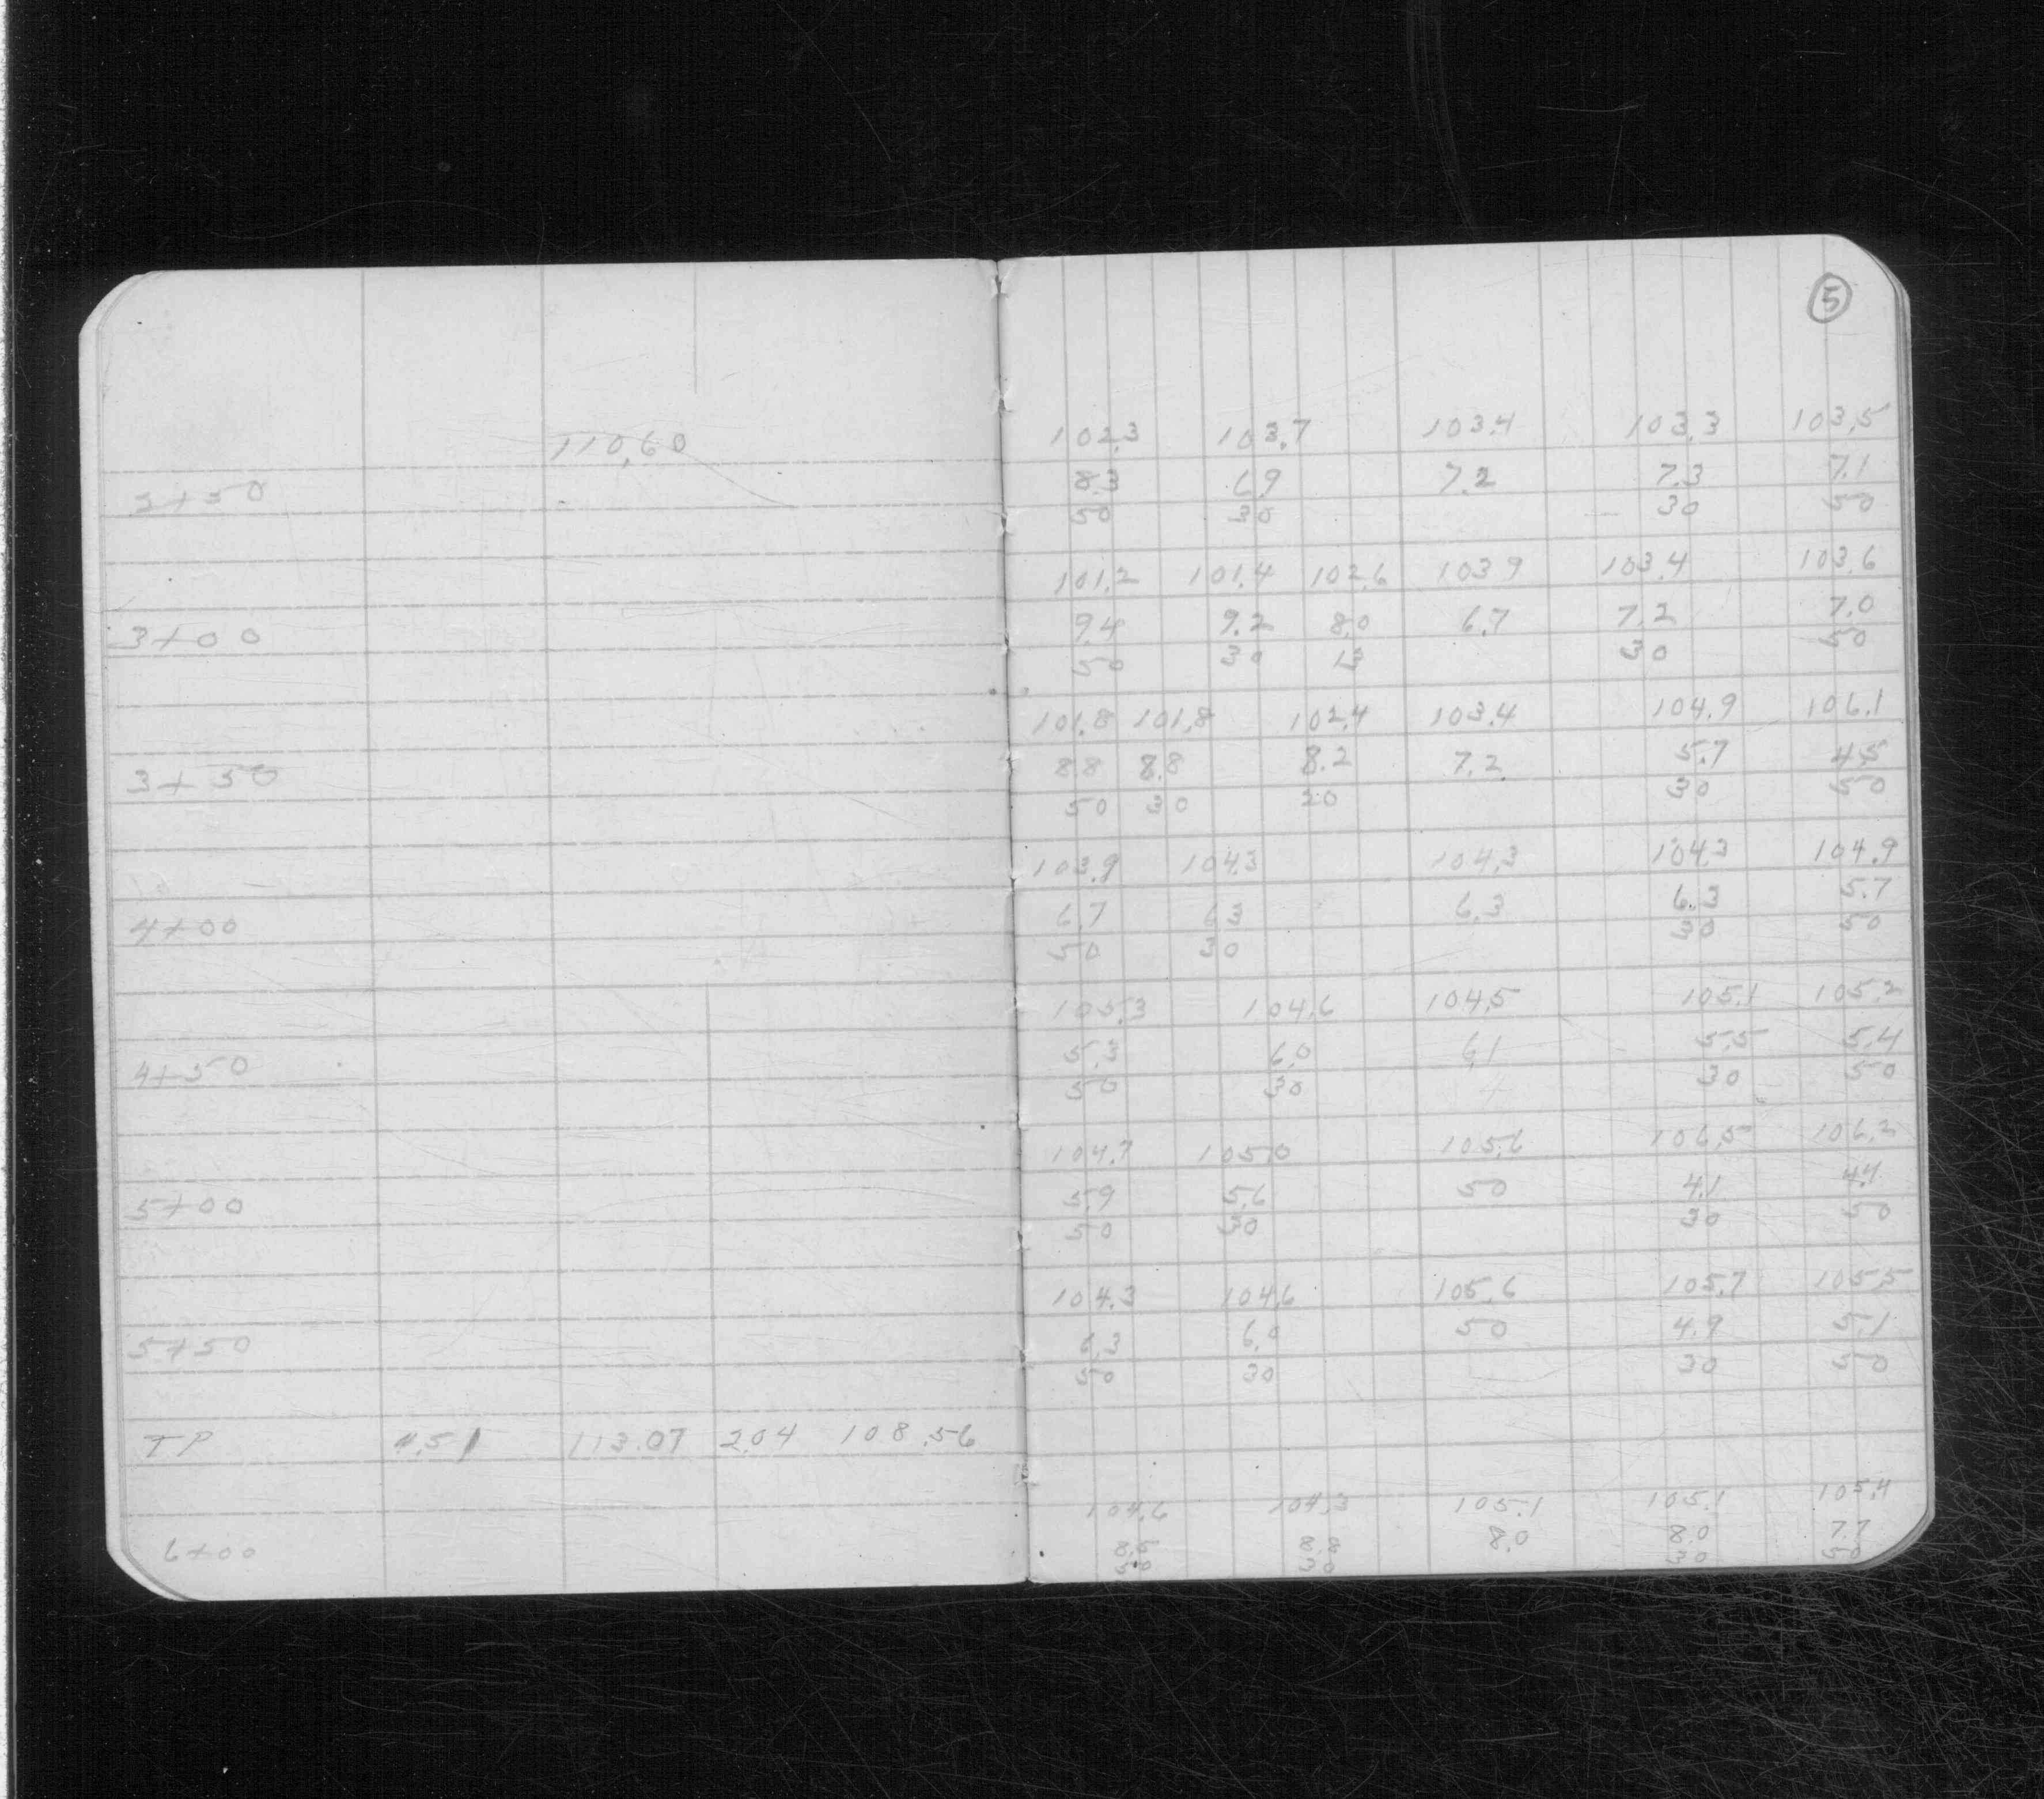 5
110.60 102.3 103.7 103.4 103.3 103.5
+50 8.3 6.9 7.2 7.3 7.1
50 30 30 50
101.2 101.4 102.6 103.9 103.4 103.6
3+00 9.4 9.2 8.0 6.7 7.2 7.0
50 30 13 30 50
101.8 101.8 102.4 103.4 104.9 106.1
3+50 8.8 8.8 8.2 7.2 5.7 4.5
50 30 20 30 50
103.9 104.3 104.3 104.3 104.9
4+00 6.7 6.3 6.3 6.3 5.7
50 30 30 50
105.3 104.6 104.5 105.1 105.2
4+50 5.3 6.0 6.1 5.5 5.4
50 30 30 50
104.7 105.0 105.6 106.5 106.2
5+00 5.9 5.6 50 4.1 4.4
50 30 30 50
104.3 104.6 105.6 105.7 105.5
5+50 6.3 6.0 50 4.9 5.1
50 30 30 50
TP 4.51 113.07 2.04 108.56
104.6 104.3 105.1 105.1 105.4
6+00 8.5 8.8 8.0 8.0 7.7
50 30 30 50